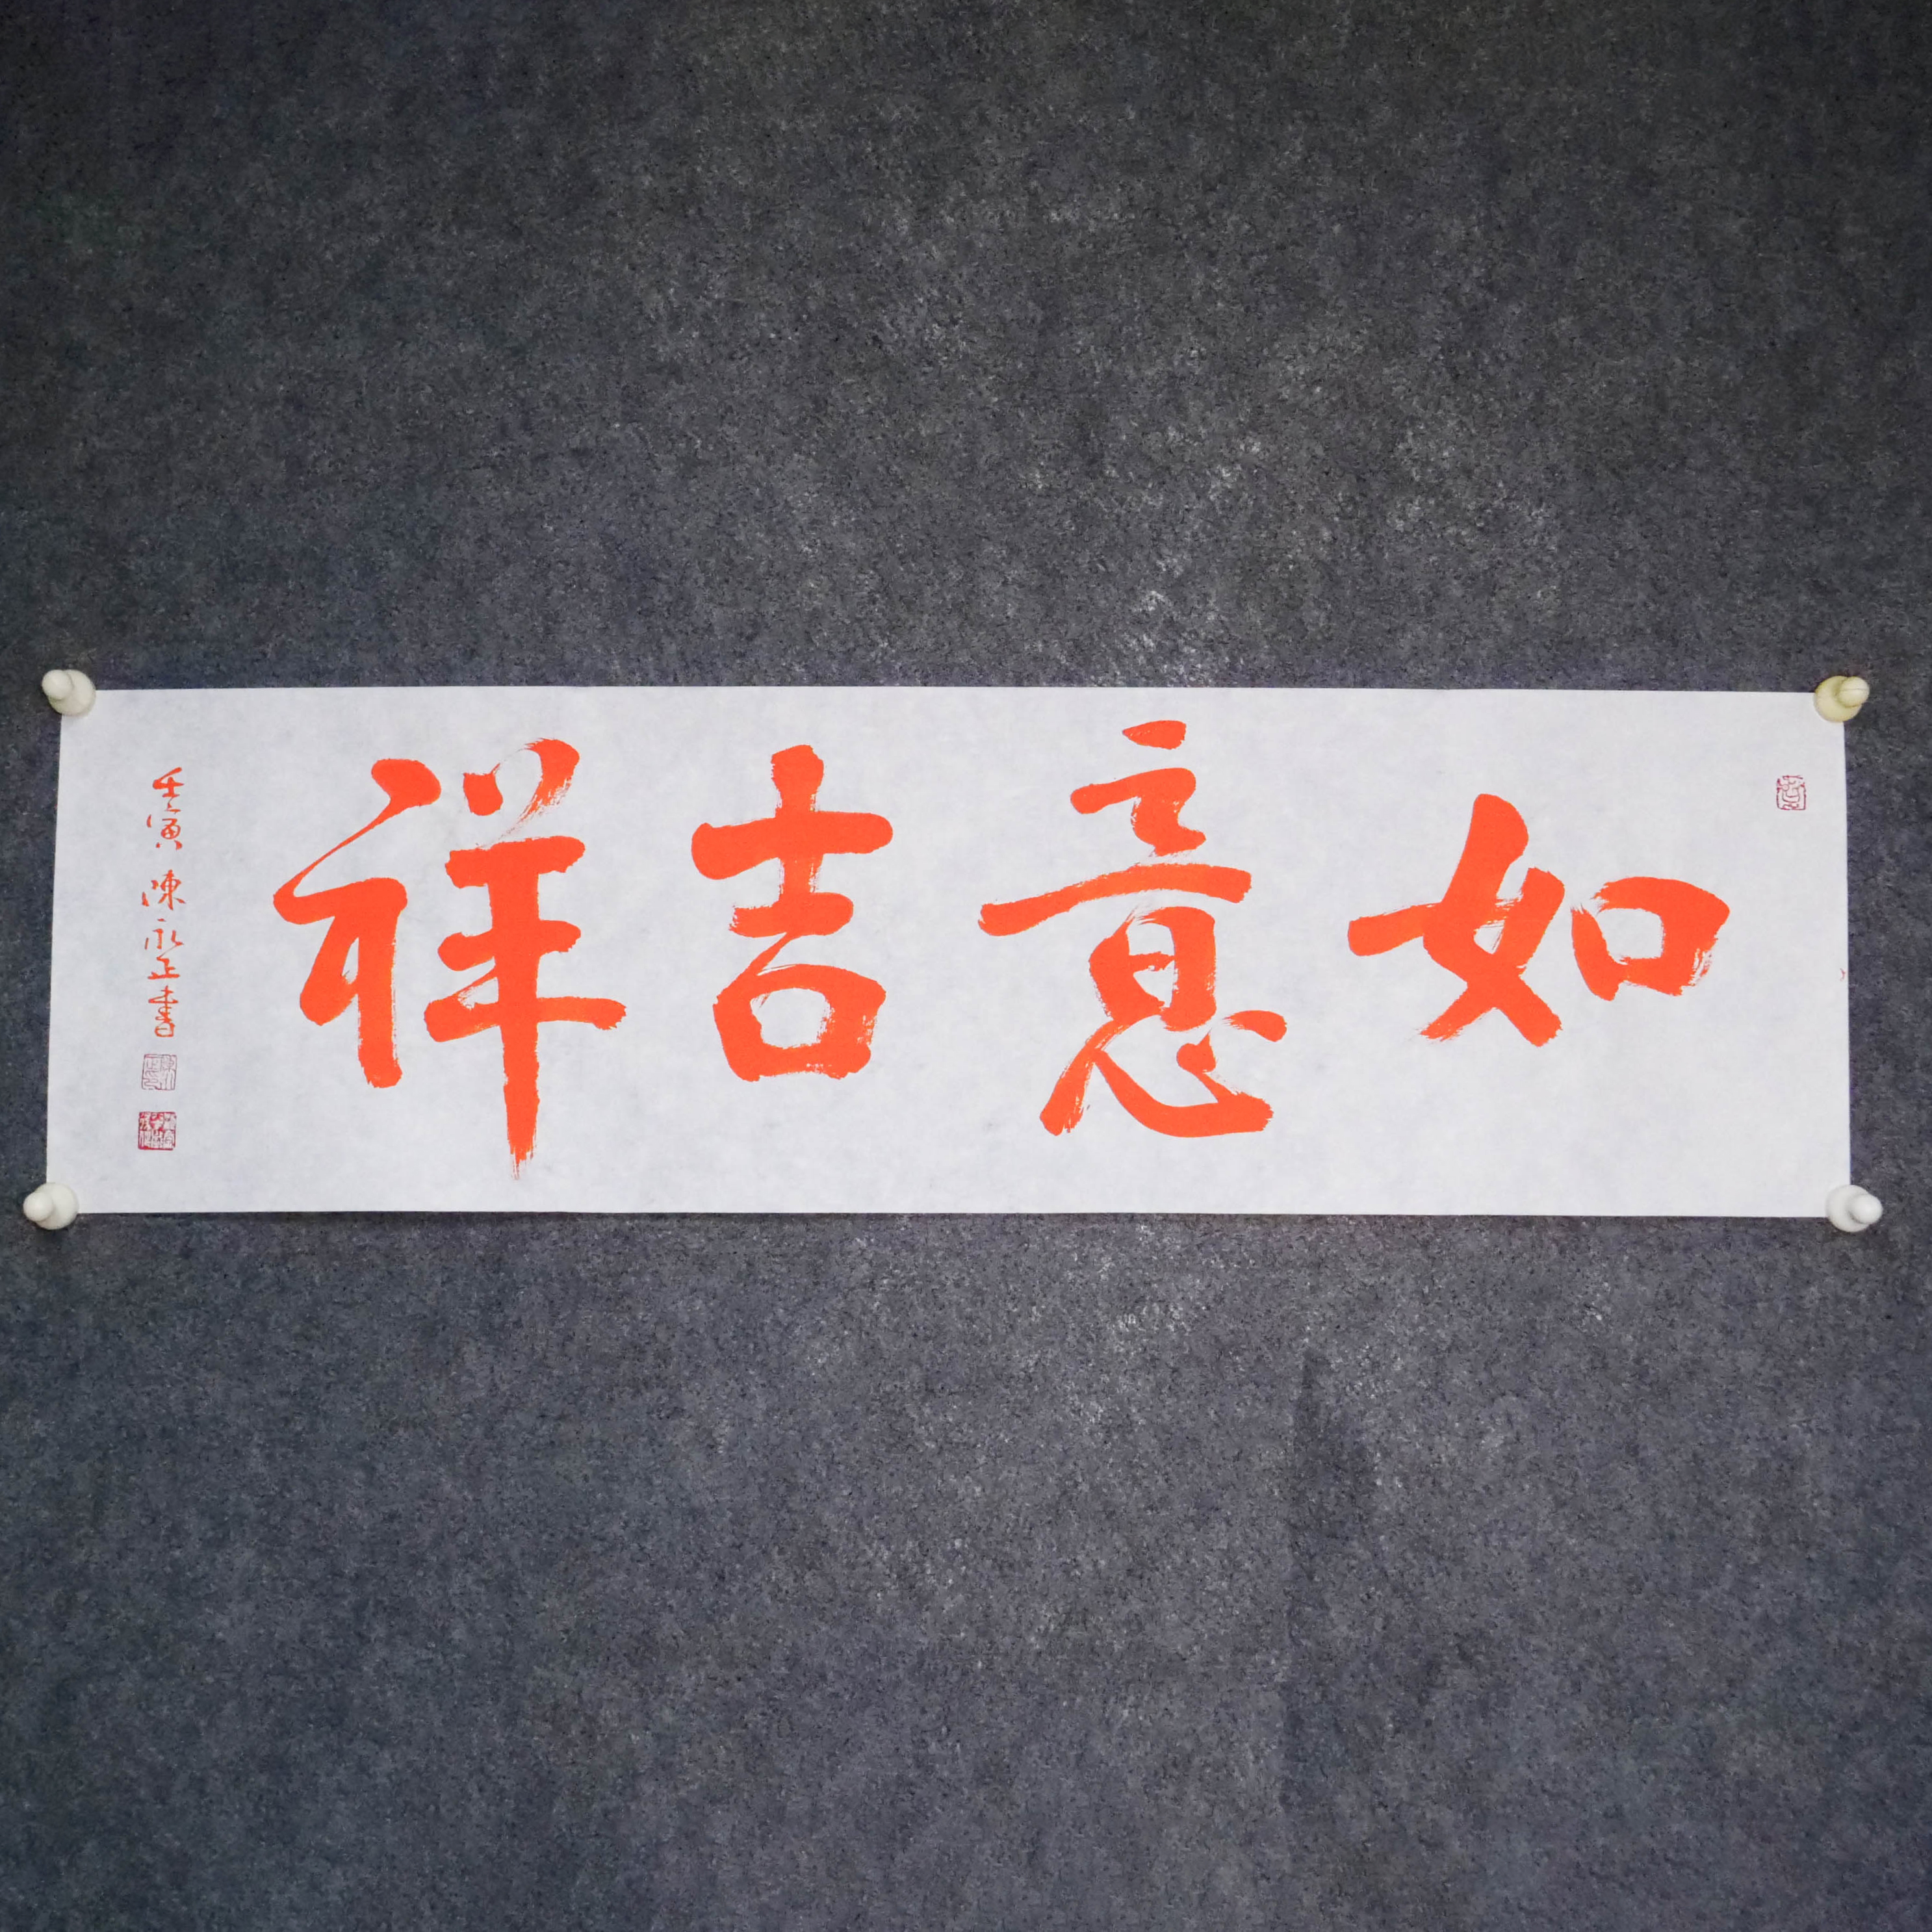 如意吉祥
壬寅 陳永正書